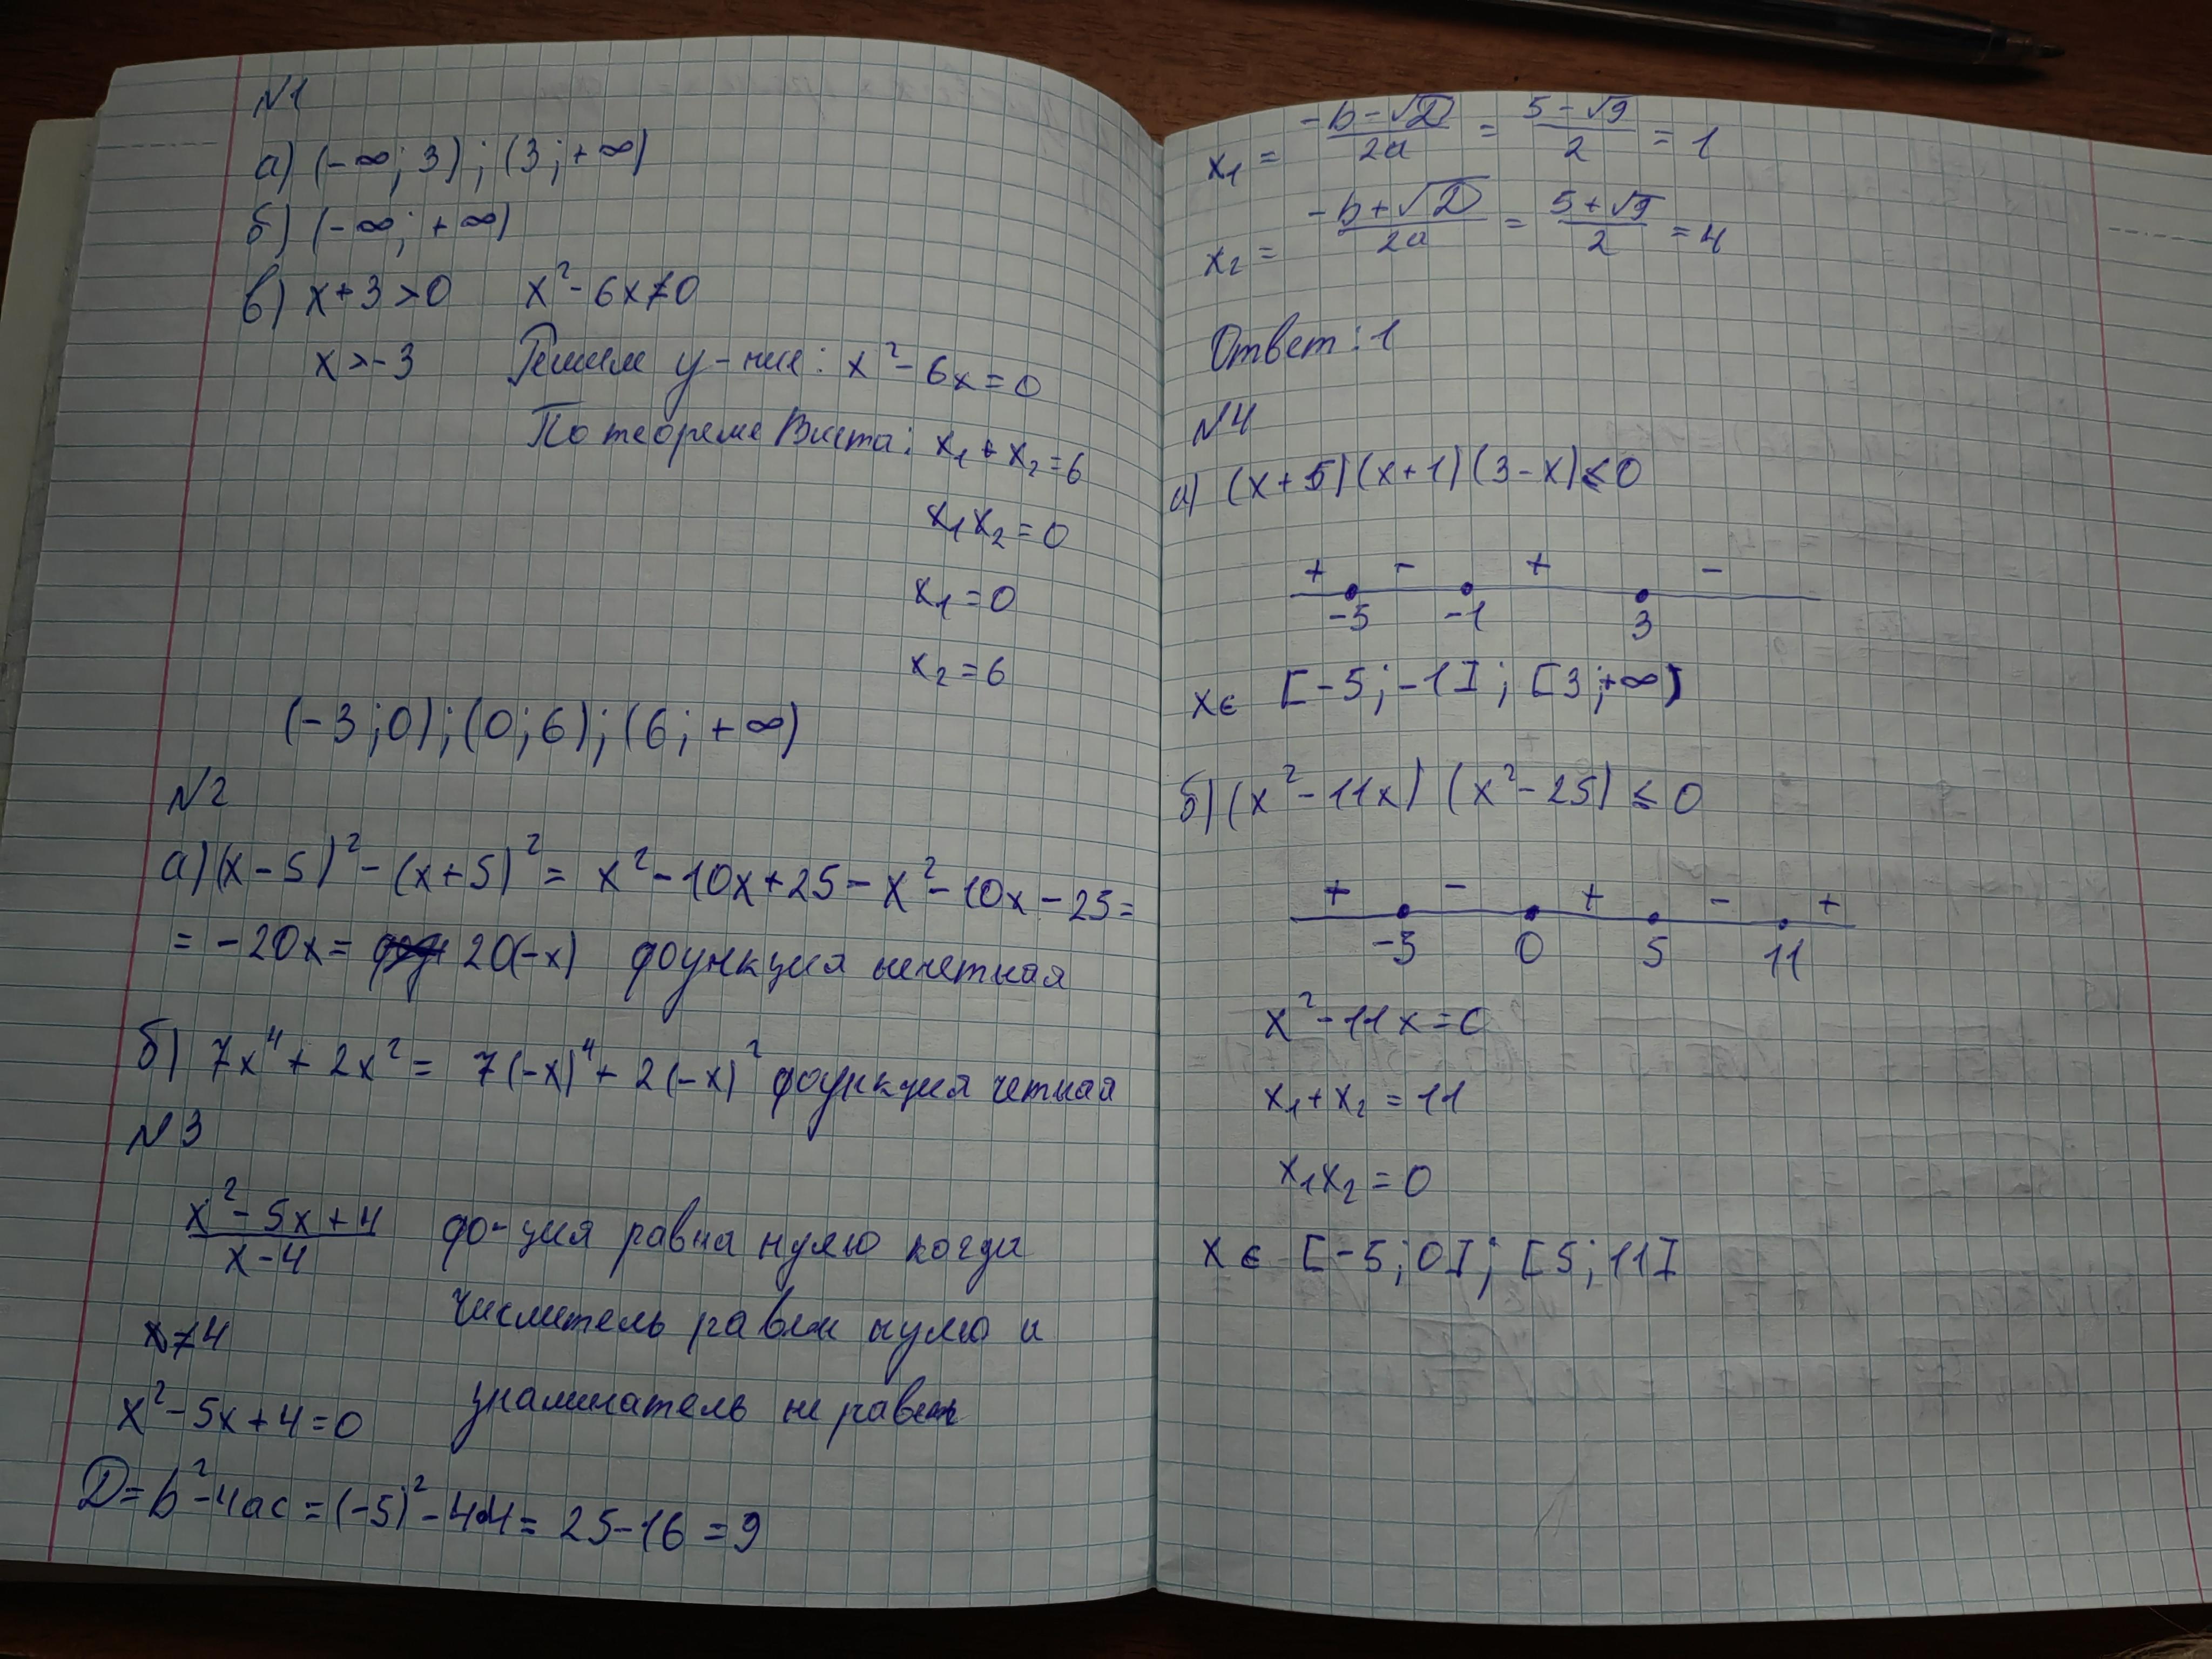 №1
а) (-∞; 3); (3; +∞)
б) (-∞; +∞)
в) x+3>0 x²-6x≠0
x>-3 Решим у-ние: x²-6x=0
По теореме Виета: x₁+x₂=6
x₁x₂=0
x₁=0
x₂=6
(-3;0);(0;6);(6;+∞)
№2
а)(x-5)²-(x+5)²= x²-10x+25-x²-10x-25=
= -20x= 20(-x) функция нечетная
б) 7x⁴+2x²= 7(-x)⁴+2(-x)² функция четная
№3
x²-5x+4 / x-4 фо-ция равна нулю когда
x≠4 числитель равен нулю и
x²-5x+4=0 знаминатель не равен
D=b²-4ac=(-5)²-4·4= 25-16=9
x₁ = -b-√D / 2a = 5-√9 / 2 = 1
x₂ = -b+√D / 2a = 5+√9 / 2 = 4
Ответ: 1
№4
а) (x+5)(x+1)(3-x)≤0
+ - + -
-5 -1 3
x∈ [-5;-1]; [3;+∞)
б)(x²-11x) (x²-25)≤0
+ - + - +
-5 0 5 11
x²-11x=0
x₁+x₂=11
x₁x₂=0
x∈ [-5;0]; [5;11]